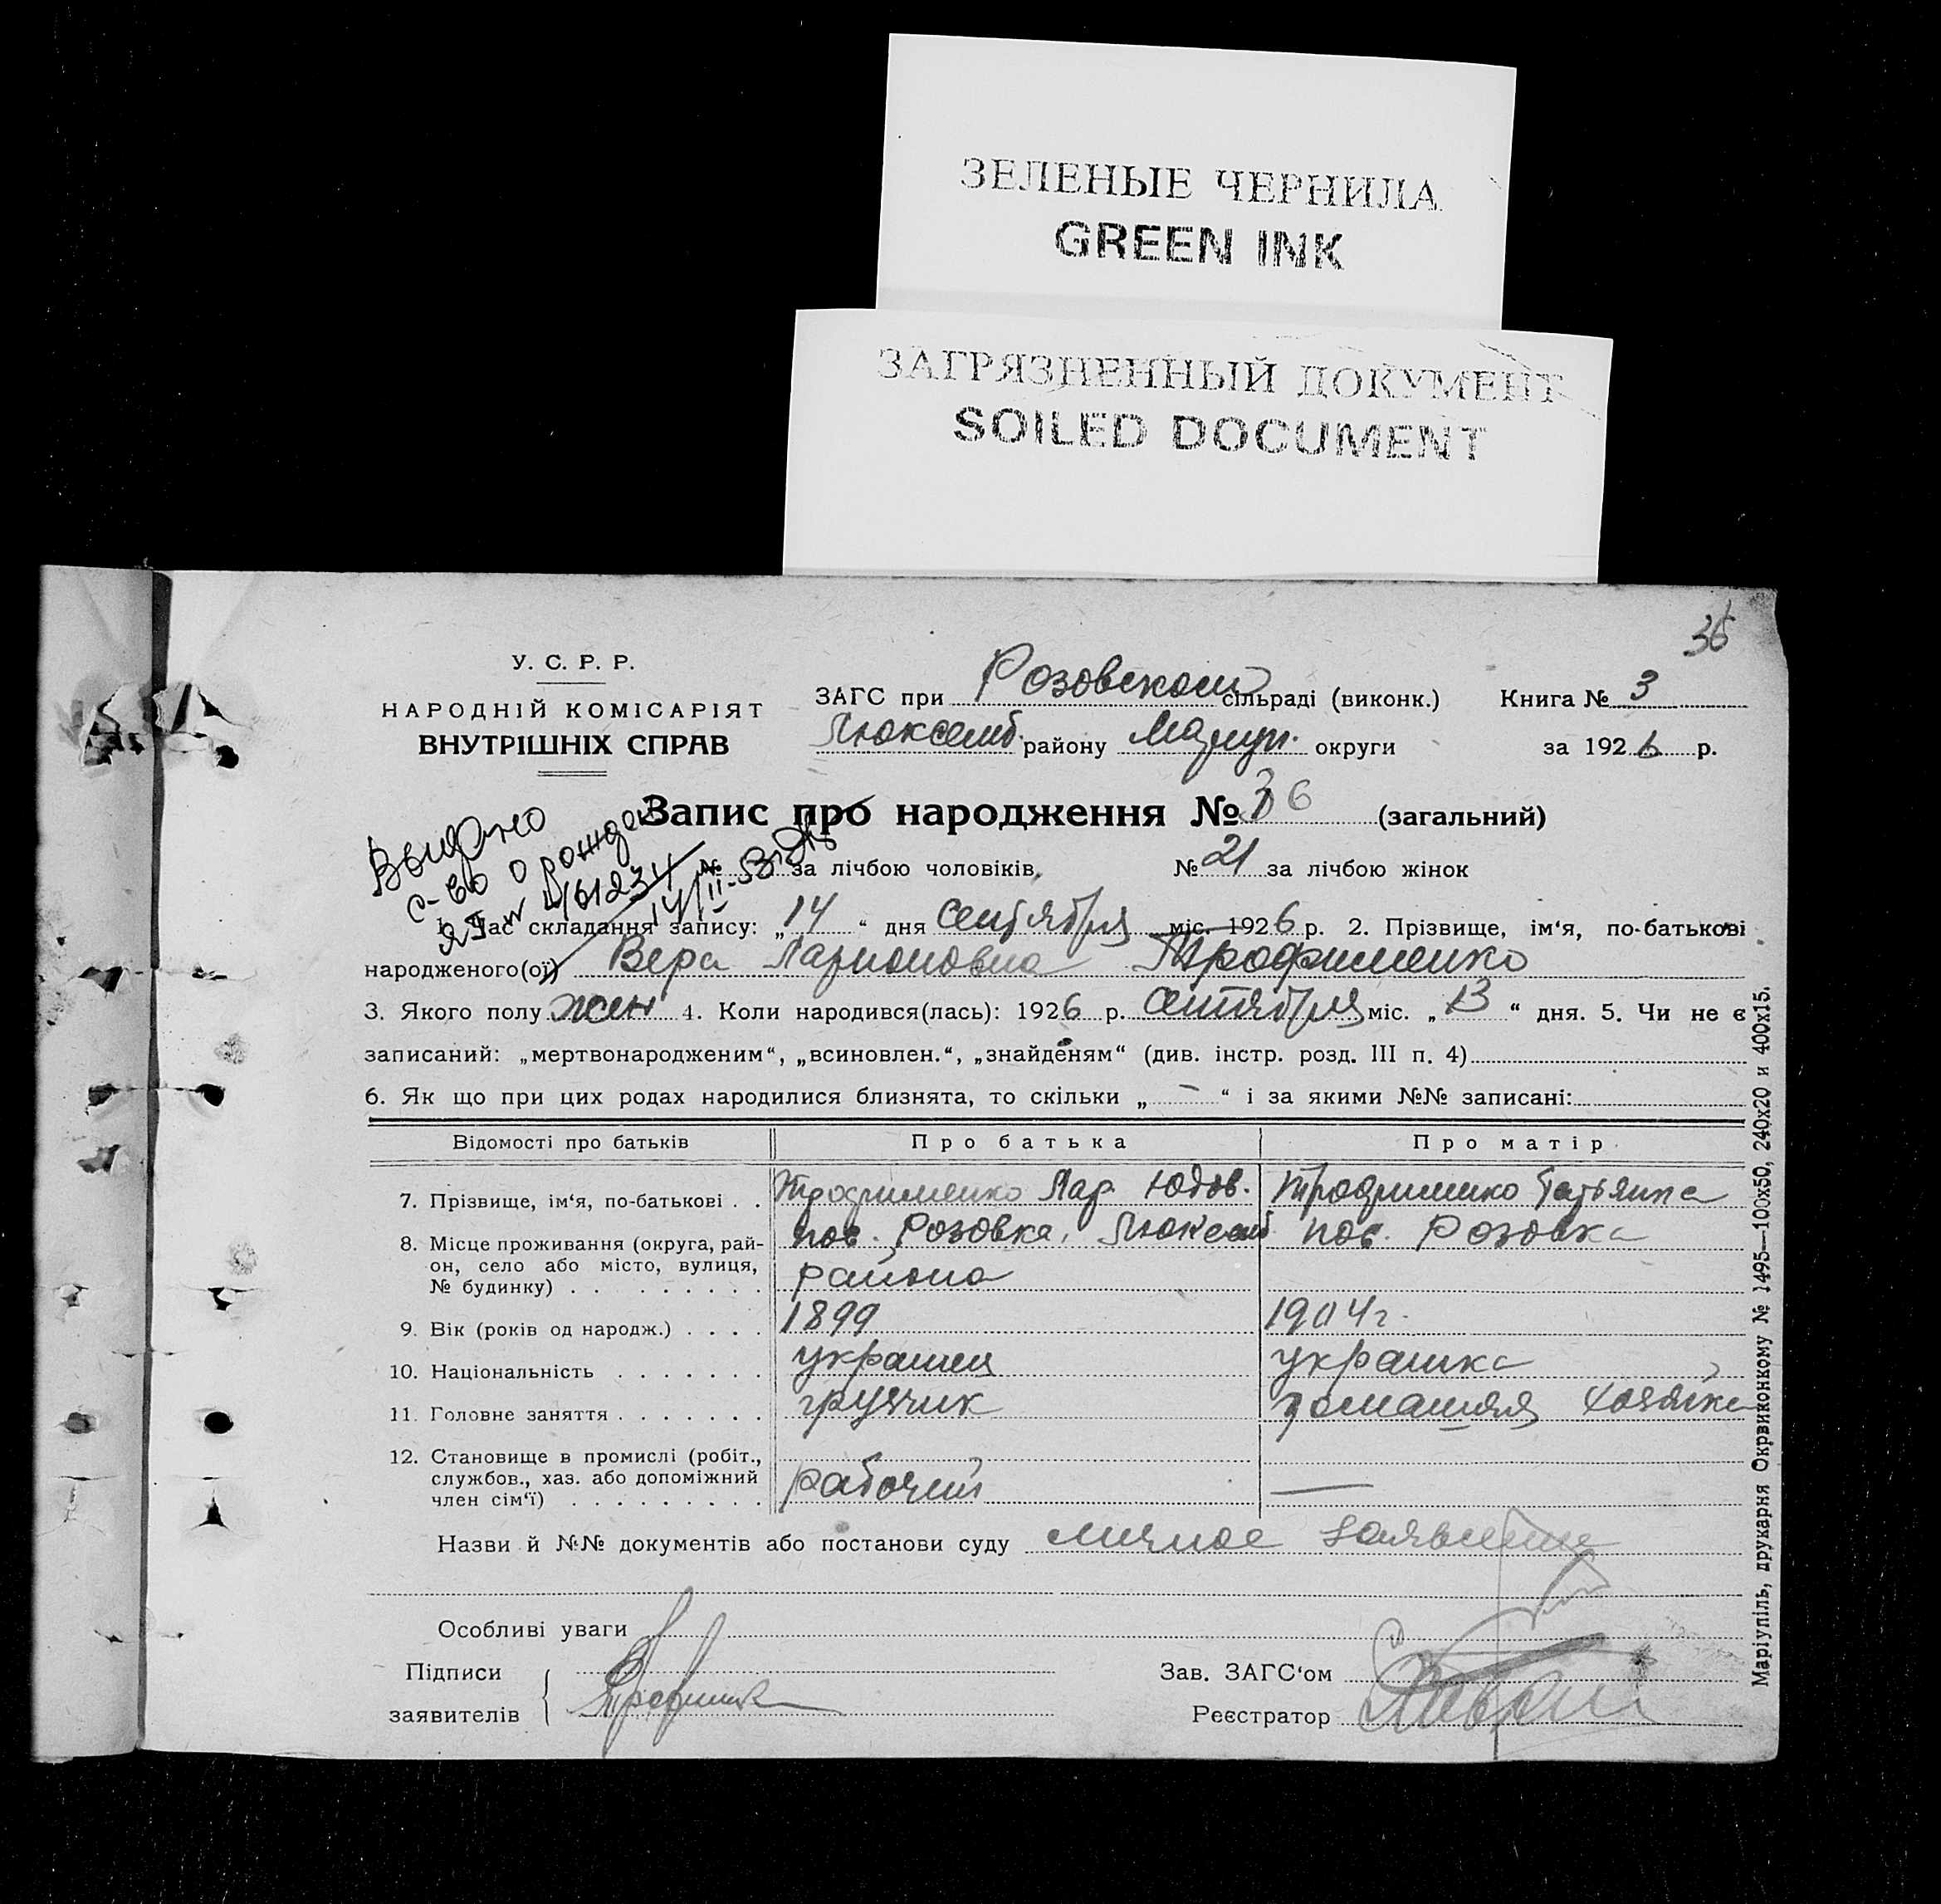 ЗЕЛЕНЫЕ ЧЕРНИЛА
GREEN INK
ЗАГРЯЗНЕННЫЙ ДОКУМЕНТ
SOILED DOCUMENT
36
У. С. Р. Р.
НАРОДНІЙ КОМІСАРІЯТ
ВНУТРІШНІХ СПРАВ
ЗАГС при Розовском сільраді (виконк.) Книга № 3
Люксемб. району Мариуп. округи за 1926 р.
Запис про народження № 36 (загальний)
Выдано
с-во о рожден
ЯІІ № 161234
14/ІІ-
№ за лічбою чоловіків, № 21 за лічбою жінок
1. Час складання запису: „14“ дня Сентября міс. 1926 р. 2. Прізвище, ім‘я, по-батькові
народженого(ої) Вера Ларионовна Трофименко
3. Якого полу жен 4. Коли народився(лась): 1926 р. Сентября міс. „13“ дня. 5. Чи не є
записаний: „мертвонародженим“, „всиновлен.“, „знайденям“ (див. інстр. розд. III п. 4)
6. Як що при цих родах народилися близнята, то скільки „ – “ і за якими №№ записані:
Відомості про батьків Про батька Про матір
7. Прізвище, ім‘я, по-батькові . . Трофименко Лар. Юдов. Трофименко Татьяна
8. Місце проживання (округа, рай- пос. Розовка, Люксемб пос. Розовка
он, село або місто, вулиця, района
№ будинку)
9. Вік (років од народж.) . . . . 1899 1904 г.
10. Національність украинец украинка
11. Головне заняття грузчик домашняя хозяйка
12. Становище в промислі (робіт.,
службов., хаз. або допоміжний рабочий —
член сім‘ї)
Назви й №№ документів або постанови суду личное заявление
Особливі уваги
Підписи Зав. ЗАГС‘ом
заявителів Реєстратор
Маріупіль, друкарня Окрвиконкому № 1495—100х50, 240х20 и 400х15.